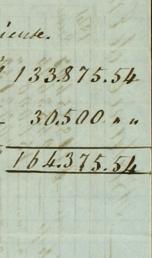 133.875.54
30.500 " "
164.375.54